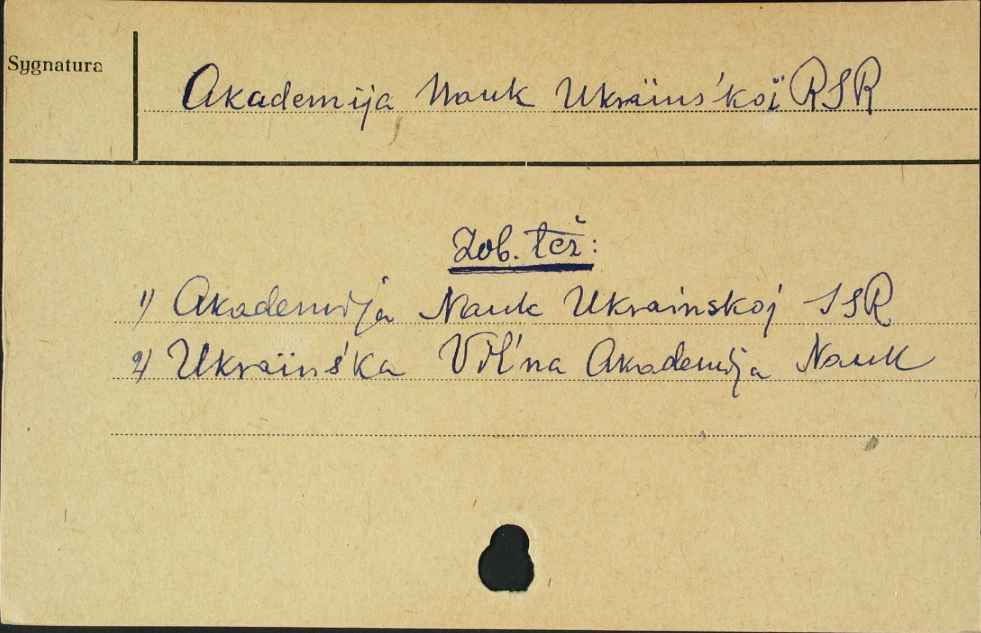 Sygnatura
Akademija Nauk Ukraïns'koï RSR
Zob. też:
1) Akademija Nauk Ukrainskoj SSR
2) Ukraïns'ka Vil'na Akademija Nauk